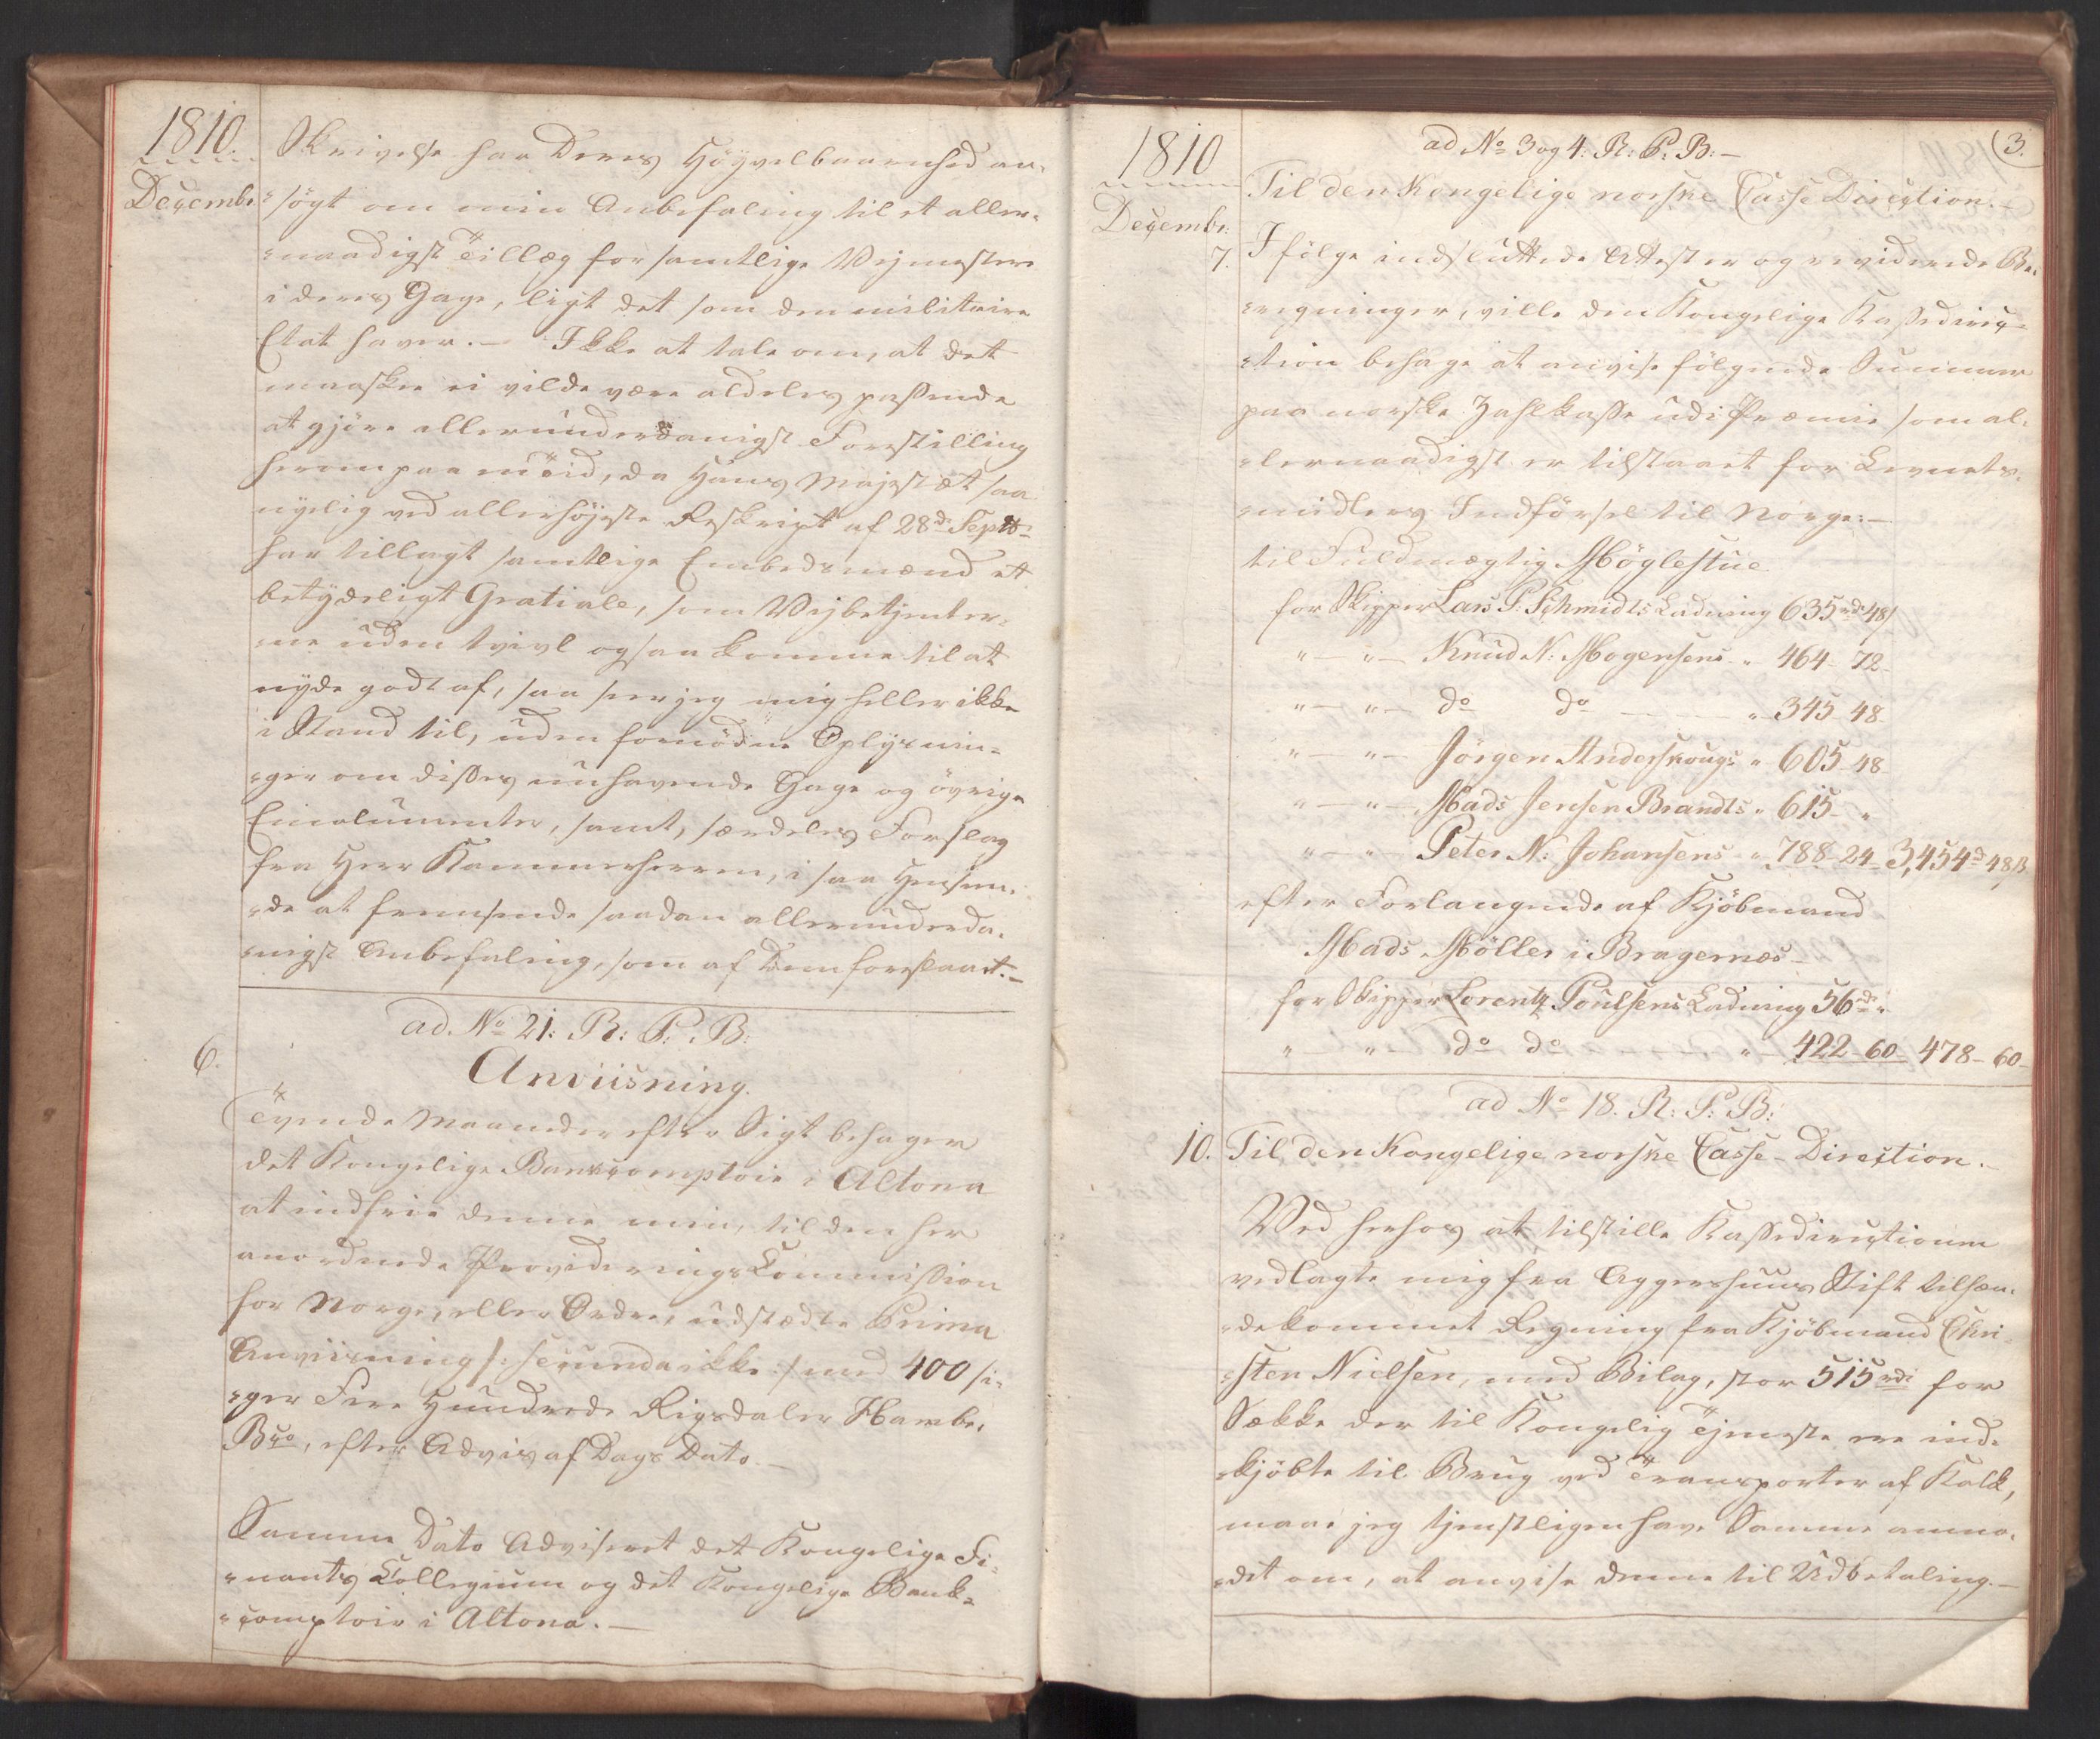 1810.
Decembr.
Skrivelse har Deres Höyvelbaarenhed an-
-sögt om min Anbefaling til et aller-
-naadigst Tillæg for samtlige Vejmestere
i deres Gage, ligt det som den militaire
Etat haver. — Ikke at tale om, at det
maaskee ei vilde være aldeles passende
at gjöre allerunderdanigst Forestilling
herom paa en Tid, da Hans Majestæt saa
nyelig ved allerhöjeste Reskript af 28d Septbr
har tillagt samtlige Embedsmænd et
betydeligt Gratiale, som Vejbetjenter-
-ne uden tvivl ogsaa komme til at
nyde godt af, saa seer jeg mig heller ikke
i Stand til, uden fornödne Oplysnin-
-ger om disses unhavende Gage og övrige
Emolumenter, samt, særdeles Forslag
fra Herr Kammerherren, i saa Henseen-
-de at fremsende saadan allerunderda-
-nigst Anbefaling, som af Dem foreslaaet. —
ad. No 21: R: P: B:
6.
Anviisning.
Tvende Maaneder efter Sigt behager
det Kongelige Bankcomptoir i Altona
at indfrie denne min, til den her
anordnede Provideringskommission
for Norge, eller Ordre, udstædte Prima
Anviisning /: secunda ikke :/ med 400 si-
-ger Fire Hundrede Rigsdaler Hambr.
Bco, efter Advis af Dags Dato. —
Samme Dato Adviseret det Kongelige Fi-
-nants Collegium og det Kongelige Bank-
-comptoir i Altona. —
1810
Decembr.
(3.
ad No 3 og 4: R: P: B: —
Til den Kongelige norske Casse Direction. —
7. Ifölge indsluttede Attester og reviderede Be-
-regninger, ville den Kongelige Kassedirec-
-tion behage at anvise fölgende Summer
paa norske Zahlkasse udi Præmie som al-
-lernaadigst er tilstaaet for Levnets-
-midlers Indförsel til Norge: —
til Fuldmægtig Möglestue
for Skipper Lars P: Schmidts Ladning 635 rdr 48 ß
" — " — Knud N: Mogensens " 464 - 72 -
" — " — do do — — " 345 - 48 -
" — " — Jörgen Anderskougs " 605 - 48
" — " — Mads Jensen Brandts " 615 - "
" — " — Peter N: Johansens " 788 - 24 - 3,454 d 48 ß
efter Forlangende af Kjöbmand
Mads Möller i Bragernæs —
for Skipper Lorentz Poulsens Ladning 56 rdr "
" — " — do do — — " — 422 - 60 - 478 - 60 -
ad No 18. R: P: B:
10. Til den Kongelige norske Casse-Direction. —
Ved herhos at tilstille Kassedirectionen
vedlagte mig fra Aggershuus Stift tilsen-
-dekommet Regning fra Kjöbmand Chri-
-sten Nielsen, med Bilag, stor 515 rdr for
Sække der til Kongelig Tjeneste ere ind-
-kjöbte til Brug ved Transporter af Kalk,
maae jeg tjenstligen have Samme anmo-
-det om, at anvise denne til Udbetaling. —